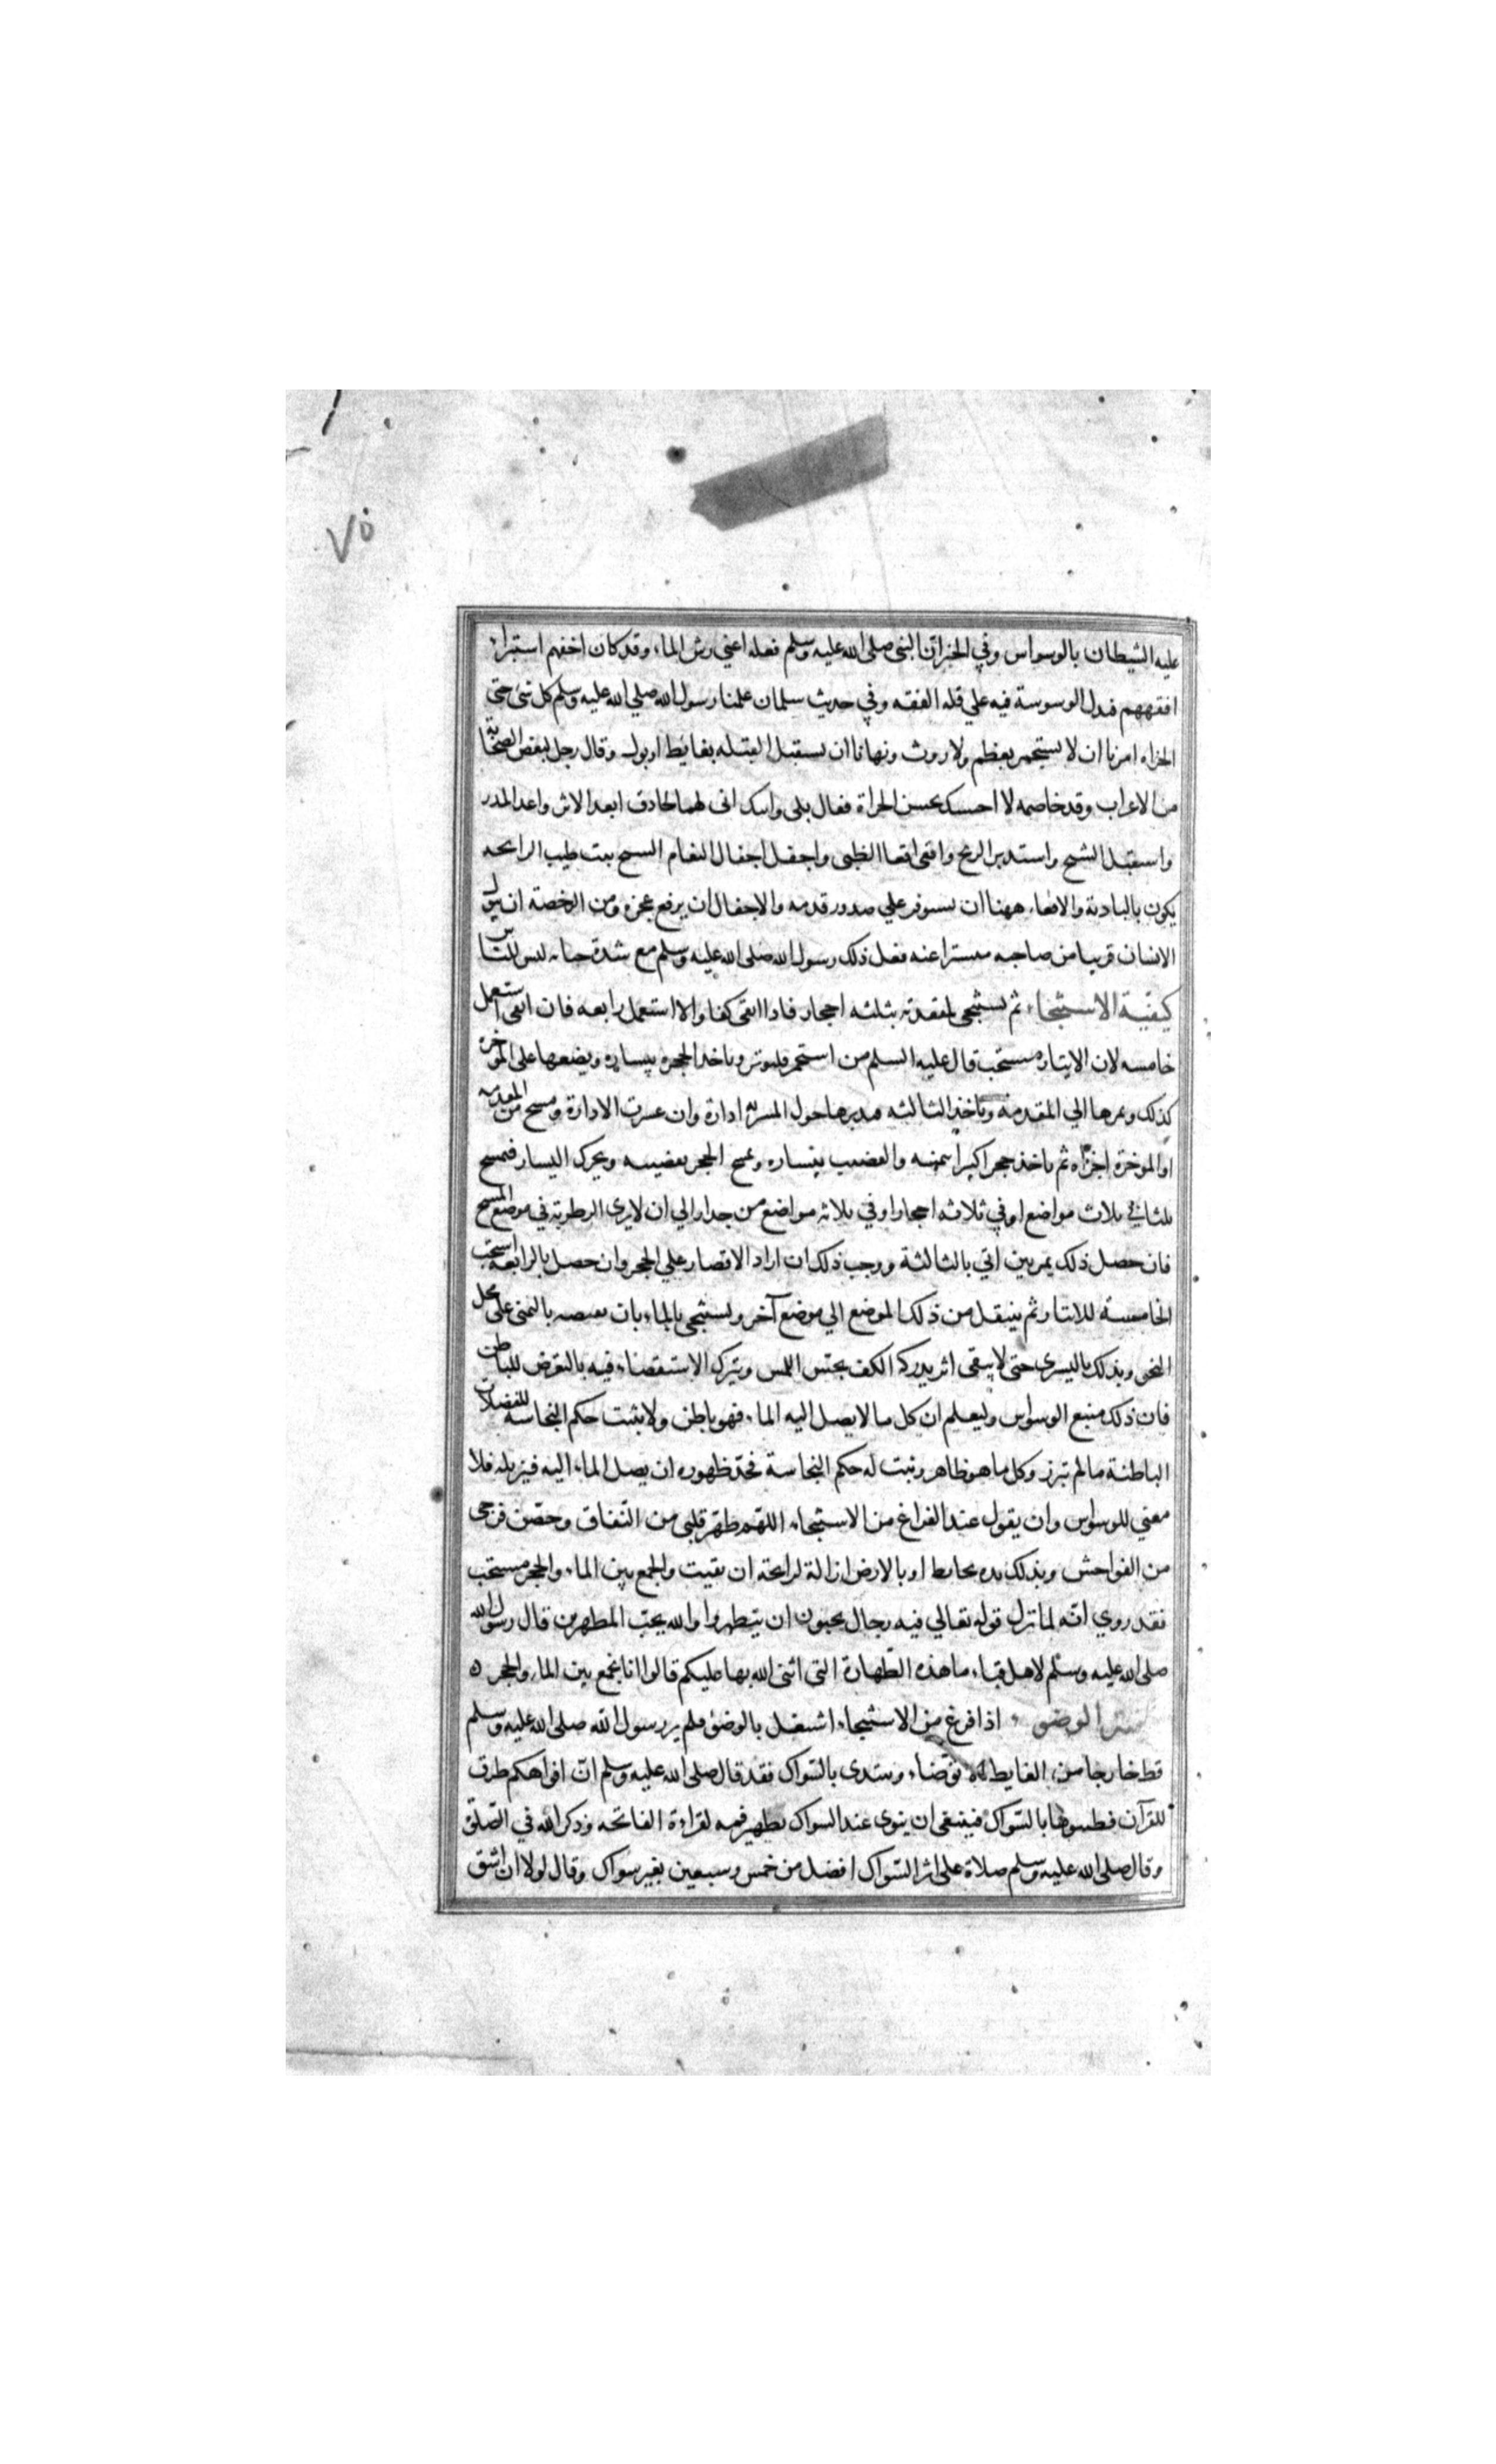 ٧٥
عليه الشيطان بالوسواس وفي الخبر انّ النبي صلى الله عليه وسلم فعله اعني رش الماء وقد كان اخفهم استبراء
افقههم فدل الوسوسة فيه علي قله الفقه وفي حديث سلمان علمنا رسول الله صلي الله عليه وسلم كل شئ حتى
الخراه امرنا ان لا نستجمر بعظم ولا روث ونهانا ان نستقبل القبله بغايط او بول وقال رجل لبعض الصحابة
من الاعراب وقد خاصمه لا احسبك تحسن الخراة فقال بلى وابيك اني لها لحاذق ابعد الاثر واعد المدر
واستقبل الشيح واستدبر الريح واقعى اقعا الظبي واجفل اجفال النعام الشيح نبت طيب الرايحه
يكون بالبادية والاقعاء ههنا ان يستوفز علي صدور قدميه والاجفال ان يرفع عجزه ومن الرخصة ان يبول
الانسان قريبا من صاحبه مستترا عنه فعل ذلك رسول الله صلى الله عليه وسلم مع شدة حيائه ليبين للناس
كيفية الاستنجاء ثم يستنجي لمقعدته بثلثه احجار فاذا انقى كفا والا استعمل رابعه فان انقى استعمل
خامسه لان الايتار مستحب قال عليه السلم من استجمر فليوتر وياخذ الحجر بيساره ويضعها على المؤخرة
كذلك ويمرها الي المقدمة وياخذ الثالثه فيديرها حول المسربة ادارة وان عسرت الادارة ومسح من المقدمه
او الموخرة اجزاه ثم ياخذ حجرا كبيرا بيمينه والقضيب بيساره ويمسح الحجر بقضيبه ويحرك اليسار فيمسح
ثلثا في ثلاث مواضع او في ثلاثه احجار او في ثلاثه مواضع من جدار الي ان لا يرى الرطوبة في موضع المسح
فان حصل ذلك بمرتين اتي بالثالثة ووجب ذلك ان اراد الاقتصار علي الحجر وان حصل بالرابعه استحب
الخامسة للايتار ثم ينتقل من ذلك الموضع الي موضع آخر ويستنجي بالماء بان يفيضه باليمنى على محل
النجو ويدلك باليسرى حتى لا يبقى اثر يدركه الكف بحسّ اللمس ويترك الاستقصاء فيه بالتعرض للباطن
فان ذلك منبع الوسواس وليعلم ان كل ما لا يصل اليه الماء فهو باطن ولا يثبت حكم النجاسه للفضلات
الباطنة ما لم تبرز وكل ما هو ظاهر وثبت له حكم النجاسة فحدّ ظهوره ان يصل الماء اليه فيزيله فلا
معني للوسواس وان يقول عند الفراغ من الاستنجاء اللهم طهر قلبي من النّفاق وحصّن فرجي
من الفواحش ويدلك يده بحايط او بالارض ازالة لرايحة ان بقيت والجمع بين الماء والحجر مستحب
فقد روي انّه لما نزل قوله تعالي فيه رجال يحبون ان يتطهروا والله يحبّ المطهرين قال رسول الله
صلى الله عليه وسلّم لاهل قباء ما هذه الطّهارة التي اثنى الله بها عليكم قالوا انا نجمع بين الماء والحجر ه
الوضو اذا فرغ من الاستنجاء اشتغل بالوضؤ فلم ير رسول الله صلى الله عليه وسلم
قط خارجا من الغايط الا توضاء ويبتدى بالسّواك فقد قال صلى الله عليه وسلم انّ افواهكم طرق
للقرآن فطيبوها بالسّواك فينبغى ان ينوى عند السواك تطهير فمه لقراءة الفاتحه وذكر الله في الصّلوة
وقال صلى الله عليه وسلم صلاة على اثر السّواك افضل من خمس وسبعين بغير سواك وقال لولا ان اشق